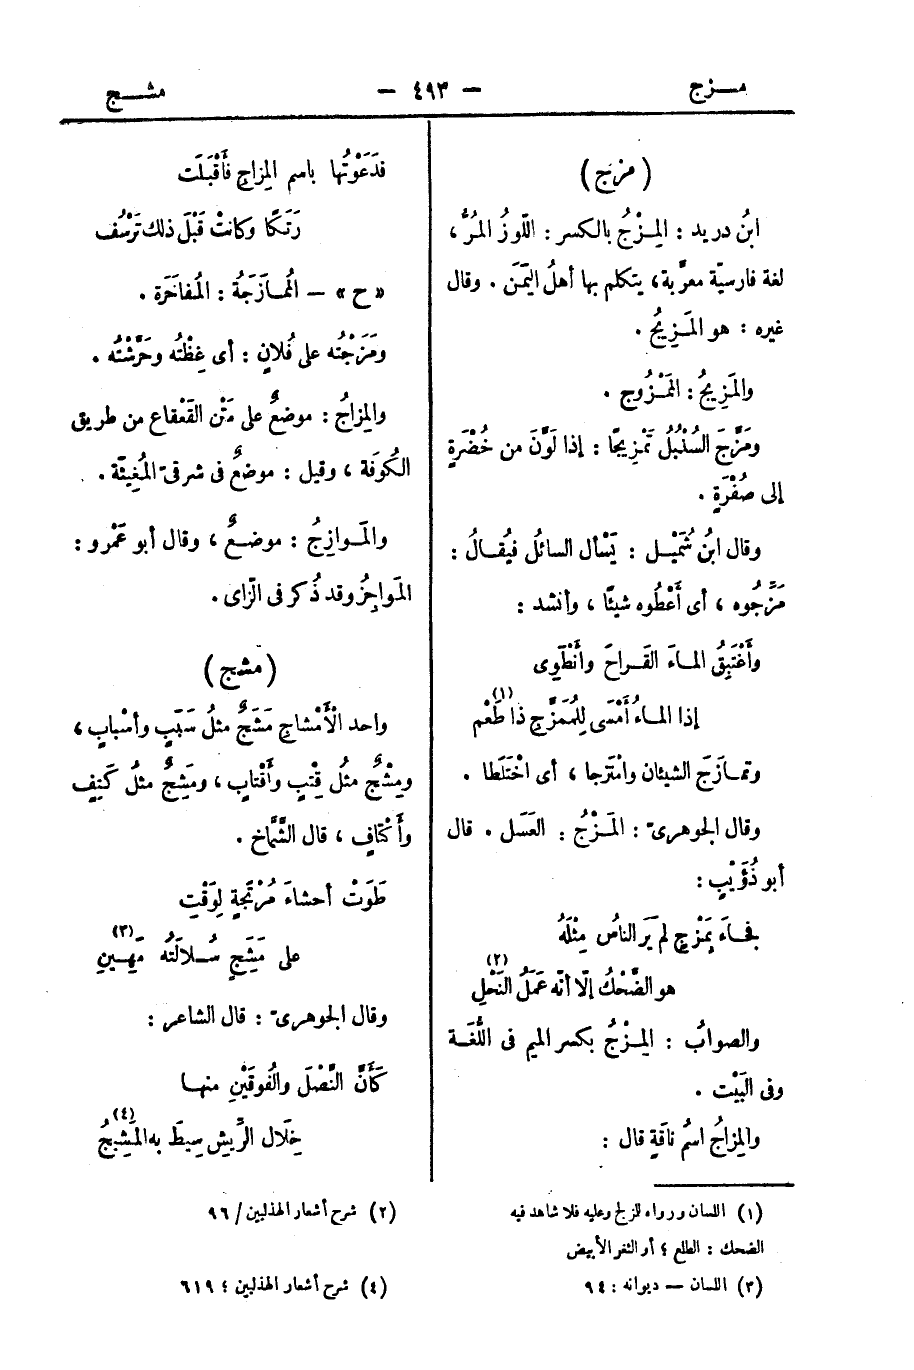 مـــزج — ٤٩٣ — مشـــج
(مزج)
ابنُ دريد : المِـزْجُ بالكسر : اللّوزُ المُرُّ ،
لغة فارسيّة معرّبة، يتكلم بها أهلُ اليَمَن . وقال
غيره : هو المَـزِيجُ .
والمَزِيجُ : المَمْـزُوج .
ومَزَّجَ السُنْبُلُ تَمْزِيجًا : إذا لَوَّنَ من خُضْرَةٍ
إلى صُفْرَةٍ .
وقال ابنُ شُمَيْـل : يَسْأل السائلُ فيُقـالُ :
مَزِّجُوه ، أى أَعْطُوه شيئًا ، وأنشد :
وأَغْتَبِقُ المـاءَ القَـراحَ وأَنْطَوِى
إذا المـاءُ أَمْسَى لِلْمُمَزَّجِ ذا طَعْم (١)
وتمـازَجَ الشيئان وامْتَزجا ، أى اخْتَلَطا .
وقال الجوهرىّ : المَـزْجُ : العَسَل . قال
أبو ذُؤَيْبٍ :
فجـاءَ بِمَزْجٍ لم يَرَ الناسُ مِثْلَهُ
هو الضَّحْكُ إلّا أنّه عَمَلُ النَحْلِ (٢)
والصوابُ : المِـزْجُ بكسر الميم فى اللُّغَـة
وفى البَيْت .
والمِزاجُ اسمُ ناقَةٍ قال :
فدَعَوْتُها باسم المِزاجِ فأَقْبَلَت
رَتَكًا وكانتْ قَبْلَ ذلك تَرْسُف
« ح » — المُمـازَجَةُ : المُفاخَرَة .
ومَزَجْتُه على فُلانٍ : أى غِظْتُه وحَرَّشْتُه .
والمِزاجُ : موضعٌ على مَتْن القَعْقاع من طريق
الكُوفَة ، وقيل : موضعٌ فى شرقىّ المُغِيثَة .
والمَـوازِجُ : موضـعٌ ، وقال أبو عَمْرو :
المَواجِزُ وقد ذُكر فى الزّاى .
(مشج)
واحد الأَمْشاجِ مَشَجٌ مثلُ سَبَبٍ وأسْبابٍ ،
ومِشْجٌ مثْلُ قِتْبٍ وأَقْتابٍ ، ومَشِجٌ مثلُ كَتِفٍ
وأَكْتافٍ ، قال الشَّمَّاخ .
طَوَتْ أحشاءَ مُرْتَجَةٍ لِوَقْتِ
على مَشَجٍ سُـلالَتُه مَهِينِ (٣)
وقال الجوهرىّ : قال الشاعر :
كَأَنَّ النَّصْلَ والفُوقَيْنِ منهـا
خِلَال الرِّيشِ سِيطَ به المَشِيجُ (٤)
(١) اللسان ورواه للزلج وعليه فلا شاهد فيه
(٢) شرح أشعار الهذليين / ٩٦
الضحك : الطلع ؛ أو الثغر الأبيض
(٣) اللسان — ديوانه : ٩٤
(٤) شرح أشعار الهذليين ؛ ٦١٩